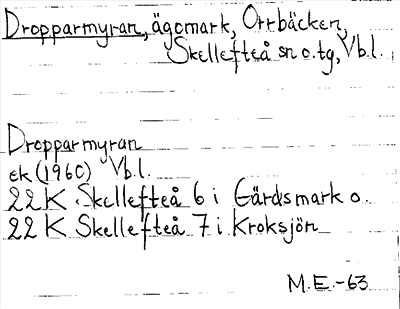 Dropparmyran, ägomark, Orrbäcken,
Skellefteå sn o. tg, Vb.l.
Dropparmyran
ek (1960) Vb.l.
22 K Skellefteå 6 i Gärdsmark o.
22 K Skellefteå 7 i Kroksjön
M.E.-63